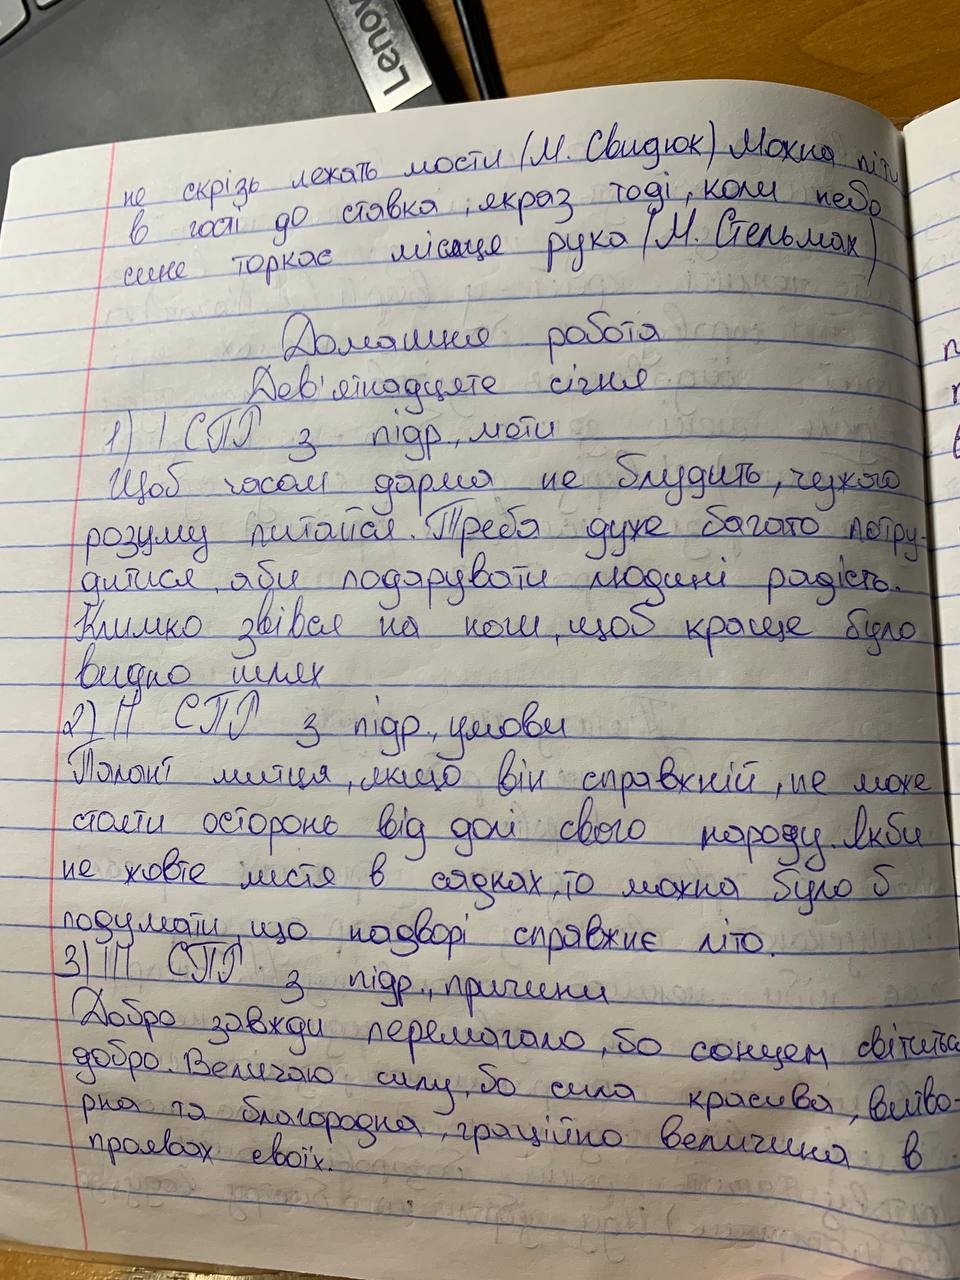 Lenov
не скрізь лежать мости (М. Свидюк) Можна піти
в гості до ставка, якраз тоді, коли небо
синє торкає місяце рука (М. Стельмах)
Домашня робота
Дев'ятнадцяте січня
1) І СПР з підр., мети
Щоб часом дарма не блудить, чужого
розуму питайся. Треба дуже багато потру-
дитися, аби подарувати людині радість.
Климко звівся на ноги, щоб краще було
видно шлях
2) ІІ СПР з підр., умови
Талант митця, якщо він справжній, не може
стояти осторонь від долі свого народу. Якби
не жовте листя в садках, то можна було б
подумати, що надворі справжнє літо.
3) ІІІ СПР з підр., причини
Добро завжди перемагало, бо сонцем світиться
добро. Величаю силу, бо сила красива, витво-
рна та благородна, граційно велична в
проявах своїх.